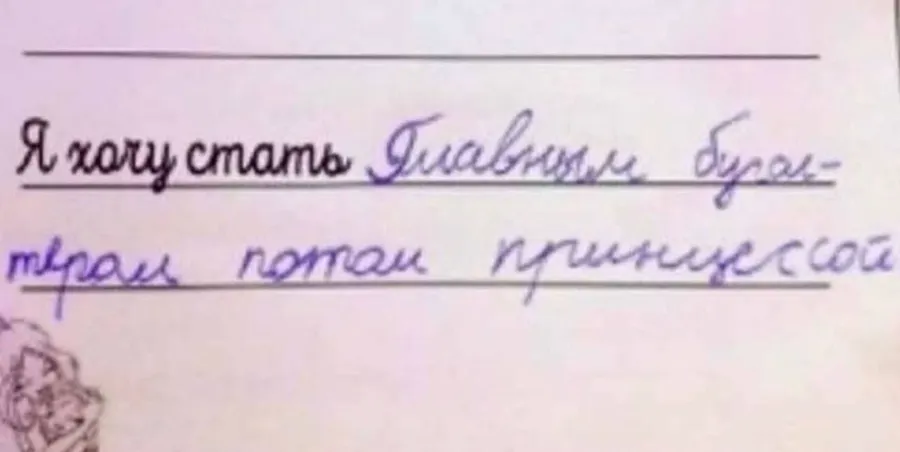 Я хочу стать Главным бугал-
тером потом принцессой